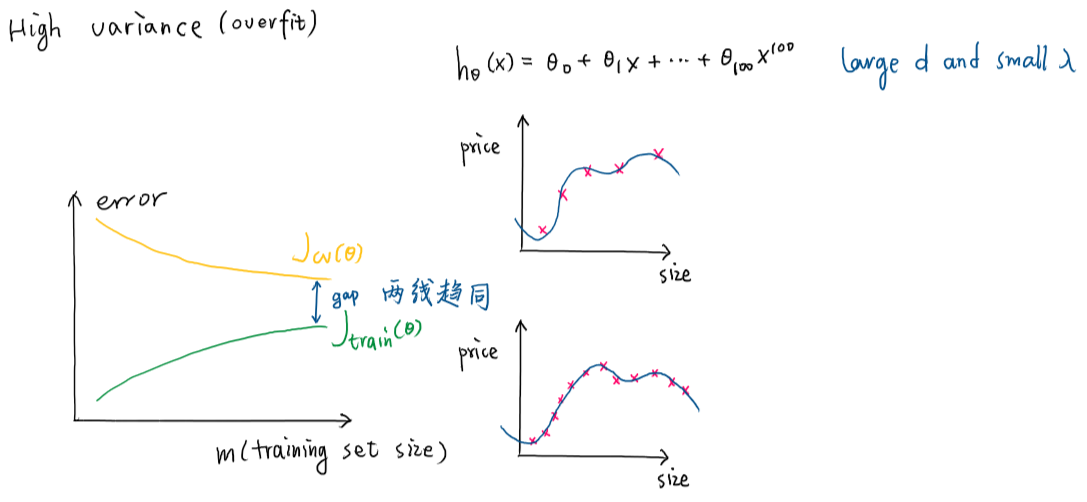 High variance (overfit)
hθ(x) = θ₀ + θ₁x + ⋯ + θ₁₀₀x¹⁰⁰ large d and small λ
price
size
error
Jcv(θ)
gap 两线趋同
Jtrain(θ)
m(training set size)
price
size